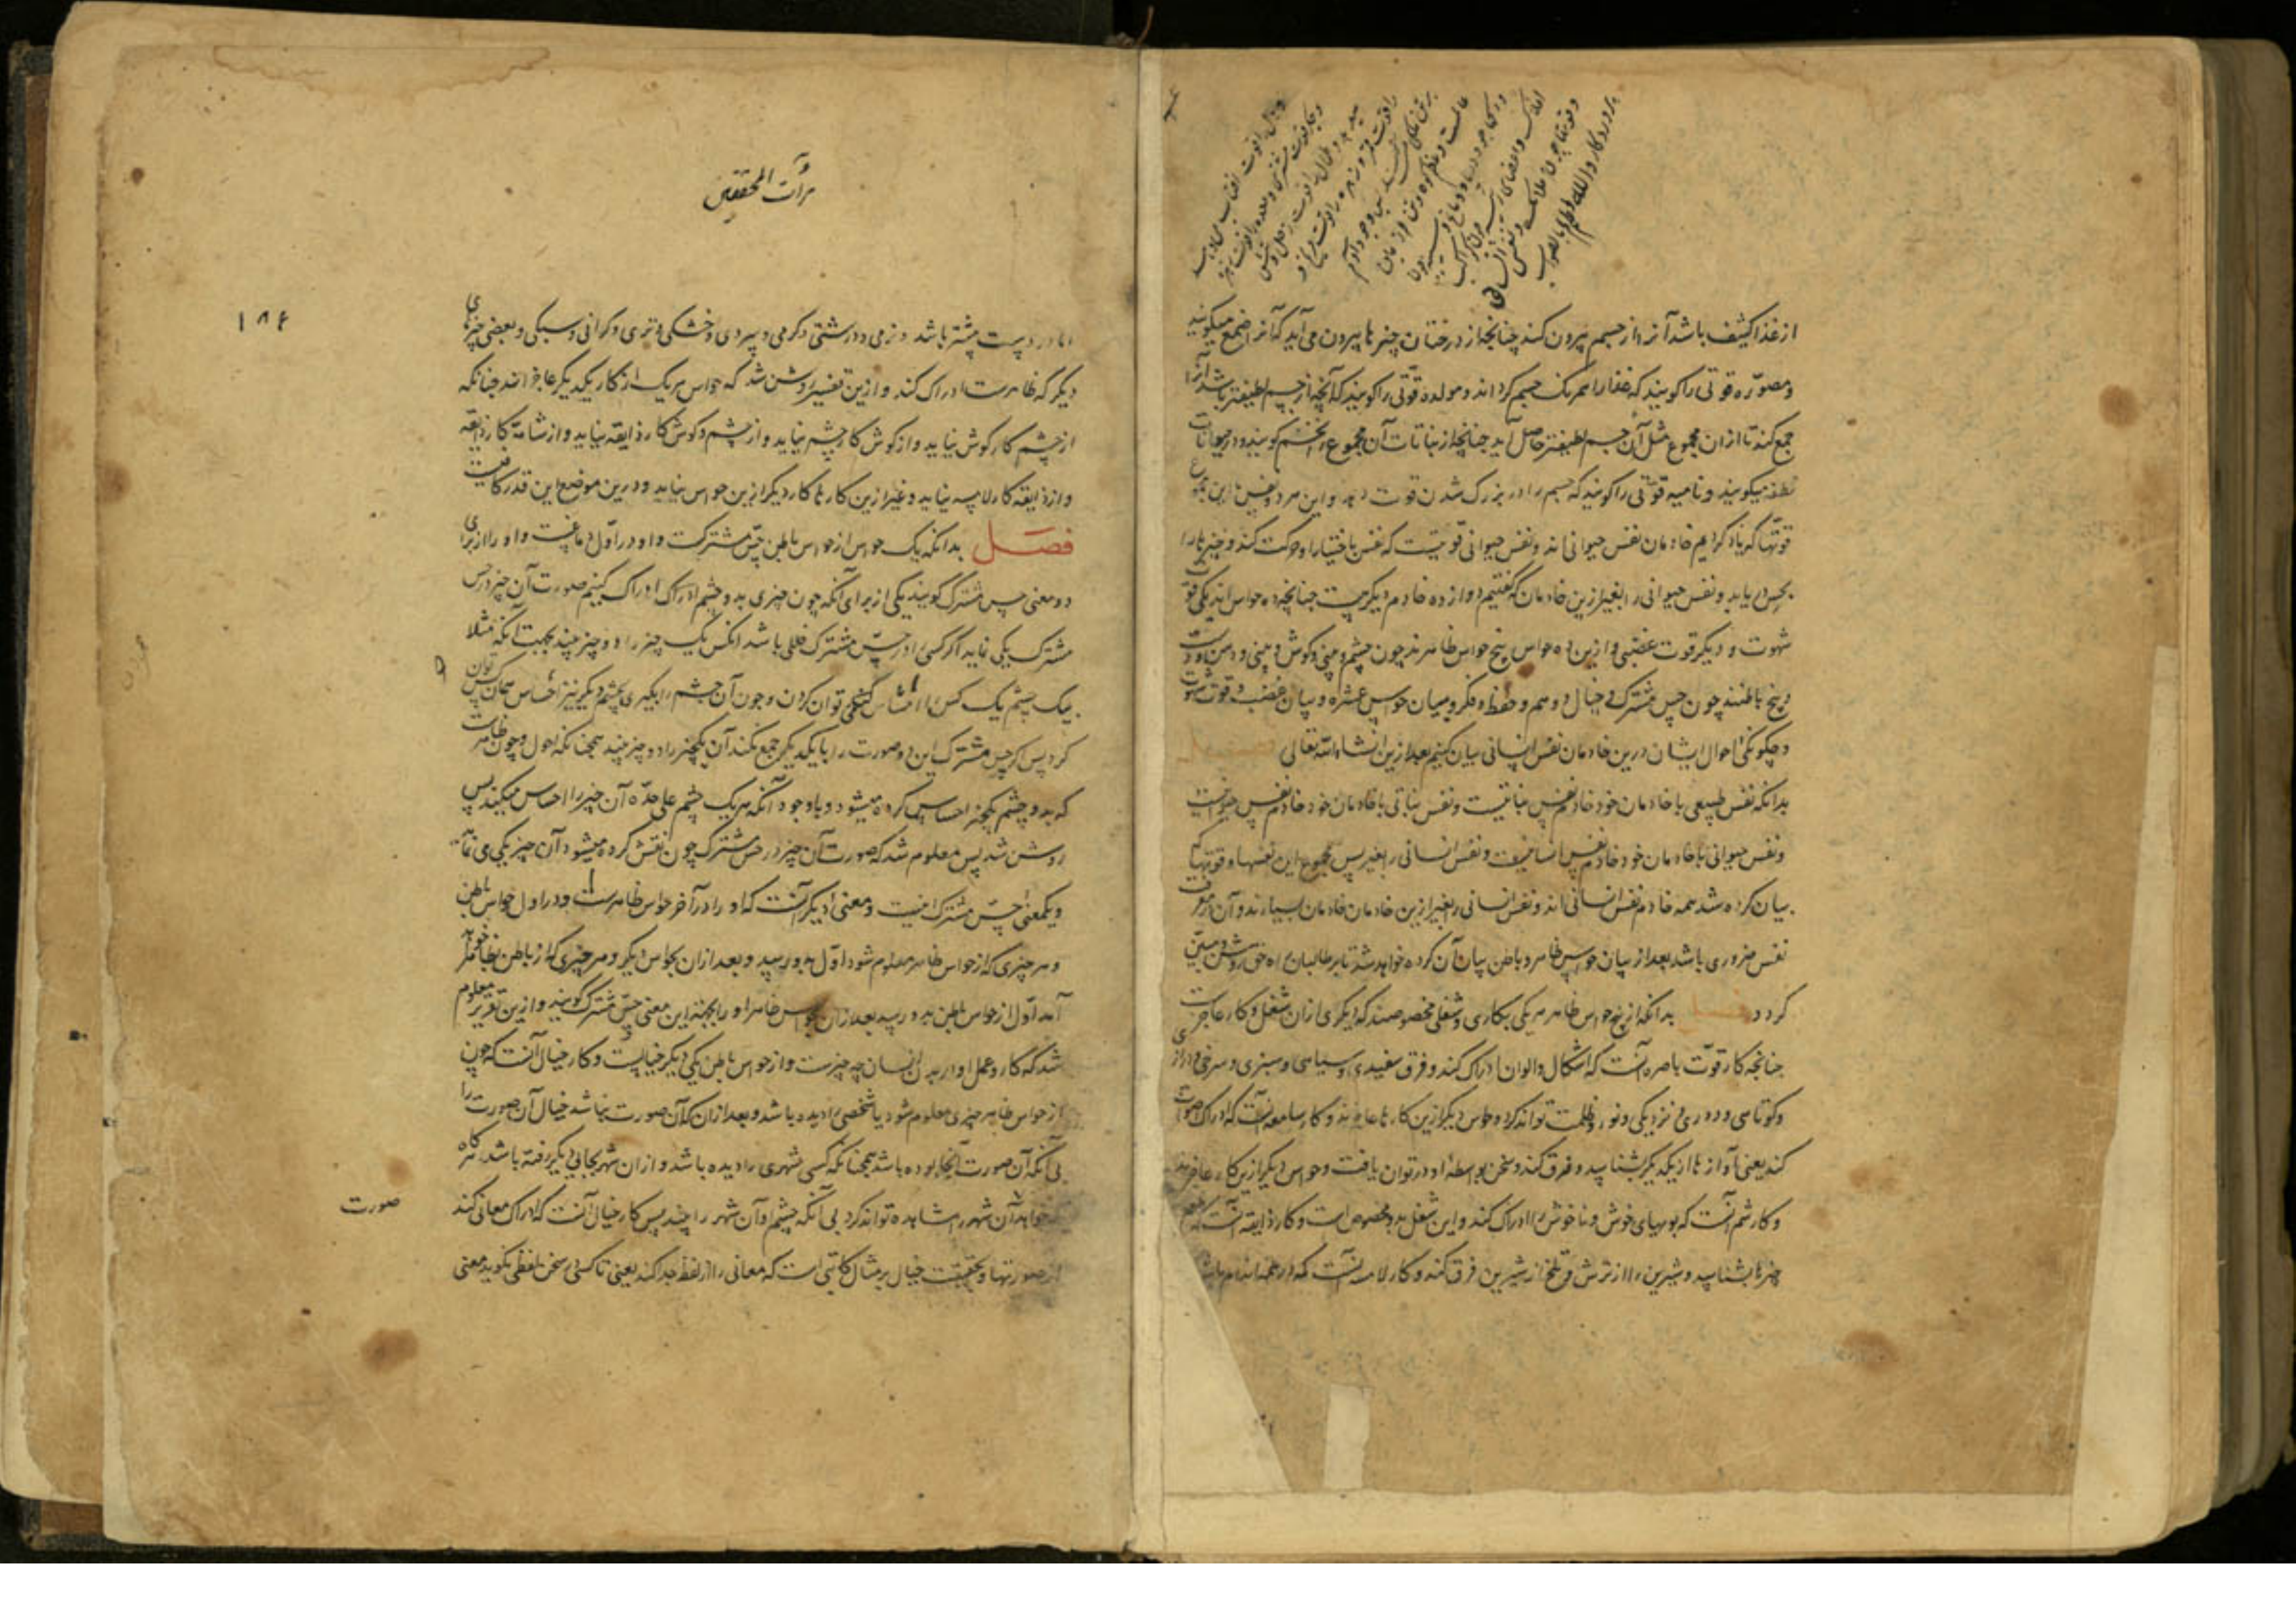 از غذا کثیف باشد آنرا از جسم بیرون کند چنانچه از درختان چیزها بیرون می آید که آنرا صمغ میگویند
و مصوّره قوتی را گویند که غذا را همرنگ جسم گرداند و مولده قوّتی را گویند که آنچه از جسم لطیفتر باشد آنرا
جمع کند تا از ان مجموع مثل آن جسم لطیفتر حاصل آید چنانچه از نباتات آن مجموع را تخم گویند و در حیوانات
نطفه میگویند و نامیه قوّتی را گویند که جسم را در بزرگ شدن قوت دهد و این هر دو نفس با این مجموع
قوّتها که یاد کردیم خادمان نفس حیوانی اند و نفس حیوانی قوتیست که نفس باختیار او حرکت کند و چیزها را
بحس دریابد و نفس حیوانی را بغیر ازین خادمان که گفتیم دوازده خادم دیگرست چنانچه ده حواس اند یکی قوّت
شهوت و دیگر قوت غضبی و ازین ده حواس پنج حواس ظاهرند چون چشم و گوش و بینی و دهن و دست
و پنج باطنند چون حس مشترک و خیال و وهم و حفظ و فکر و بیان حواس عشره و بیان غضب و قوت شهوت
و چگونگی احوال ایشان درین خادمان نفس انسانی بیان کنیم بعد ازین انشاء الله تعالی فصل
بدانکه نفس طبیعی با خادمان خود خادم نفس نباتیست و نفس نباتی با خادمان خود خادم نفس حیوانیست
و نفس حیوانی با خادمان خود خادم نفس انسانیست و نفس انسانی را بغیر پس مجموع این نفسها و قوتها که
بیان کرده شد همه خادم نفس انسانی اند و نفس انسانی را بغیر ازین خادمان خادمان بسیارند و آن در معرفت
نفس ضروری باشد بعد از بیان حواس ظاهر و باطن بیان آن کرده خواهد شد تا بر طالبان راه حق روشن و مبیّن
گردد فصل بدانکه از پنج حواس ظاهر هر یکی بکاری و شغلی مخصوصند که دیگری از ان شغل و کار عاجزست
چنانچه کار قوّت باصره آنست که اشکال و الوان ادراک کند و فرق سفیدی و سیاهی و سبزی و سرخی و درازی
و کوتاهی و دوری و نزدیکی و نور و ظلمت تواند کرد و حواس دیگر ازین کارها عاجزند و کار سامعه آنست که ادراک اصوات
کند یعنی آوازها از یکدیگر بشناسد و فرق کند و سخن بواسطۀ او در توان یافت و حواس دیگر ازین کار عاجزند
و کار شم آنست که بویهای خوش و ناخوش را ادراک کند و این شغل بدو مخصوص است و کار ذایقه آنست که طعم
چیزها بشناسد و شیرین را از ترش و تلخ از شیرین فرق کند و کار لامسه آنست که در همه اندام باشد
مرآت المحققین
۱۸۴
اما در دست بیشتر باشد و نرمی و درشتی و گرمی و سردی و خشکی و تری و گرانی و سبکی و بعضی چیزهای
دیگر که ظاهرست ادراک کند و ازین تفسیر روشن شد که حواس هر یک از کار یکدیگر عاجز اند چنانکه
از چشم کار گوش نیاید و از گوش کار چشم نیاید و از چشم و گوش کار ذایقه نیاید و از شامّه کار ذایقه
و از ذایقه کار لامسه نیاید و غیر ازین کارها کار دیگر ازین حواس نیاید و درین موضع این قدر کافیست
فصل بدانکه یک حواس از حواس باطن حسّ مشترکست و او در اوّل دماغست و او را از برای
دو معنی حس مشترک گویند یکی از برای آنکه چون چیزی بدو چشم ادراک کنیم صورت آن چیز در حس
مشترک یکی نماید اگر کسی را در حسّ مشترک خللی باشد آنکس یک چیز را دو چیز بیند بجهت آنکه مثلا
بیک چشم یک کس را توان کردن و چون آن چشم را بگیری بچشم دیگر نیز احساس همان کس توان
کرد پس اگر حس مشترک این دو صورت را با یکدیگر جمع نکند آن یکچیز را دو چیز بیند همچنانکه احول و چون ظاهرست
که بدو چشم یکچیز احساس کرده میشود و باوجود آنکه هر یک چشم علی حدّه آن چیز را احساس میکنند پس
روشن شد پس معلوم شد که صورت آن چیز در حس مشترک چون نقش کرده میشود آن چیز یکی می نماید
و یکمعنی حسّ مشترک اینست و معنی دیگر آنست که او را در آخر حواس ظاهرست و در اول حواس باطن
و هر چیزی که از حواس ظاهر معلوم شود اوّل بدو رسید و بعد ازان بحواس دیگر و هر چیزی که از باطن بظاهر خواهد
آمد اوّل از حواس باطن بدو رسید بعد ازان بحواس ظاهر او را بجهت این معنی حسّ مشترک گویند و ازین تقریر معلوم
شد که کار و عمل او در بدن انسان چه چیزست و از حواس باطن یکی دیگر خیالست و کار خیال آنست که چون
از حواس ظاهر چیزی معلوم شود یا شخصی را دیده باشد و بعد ازان که آن صورت نباشد خیال آن صورت را
بی آنکه آن صورت آنجا بوده باشد همچنانکه کسی شهری را دیده باشد و ازان شهر بجایی دیگر رفته باشد هرگاه
که خواهد آن شهر را مشاهده تواند کرد بی آنکه چشم او آن شهر را بیند پس کار خیال آنست که ادراک معانی کند
از صورتها و بحقیقت خیال بر مثال کاتبی است که معانی را از لفظ جدا کند یعنی تا کسی سخن بلفظ نگوید معنی
صورت